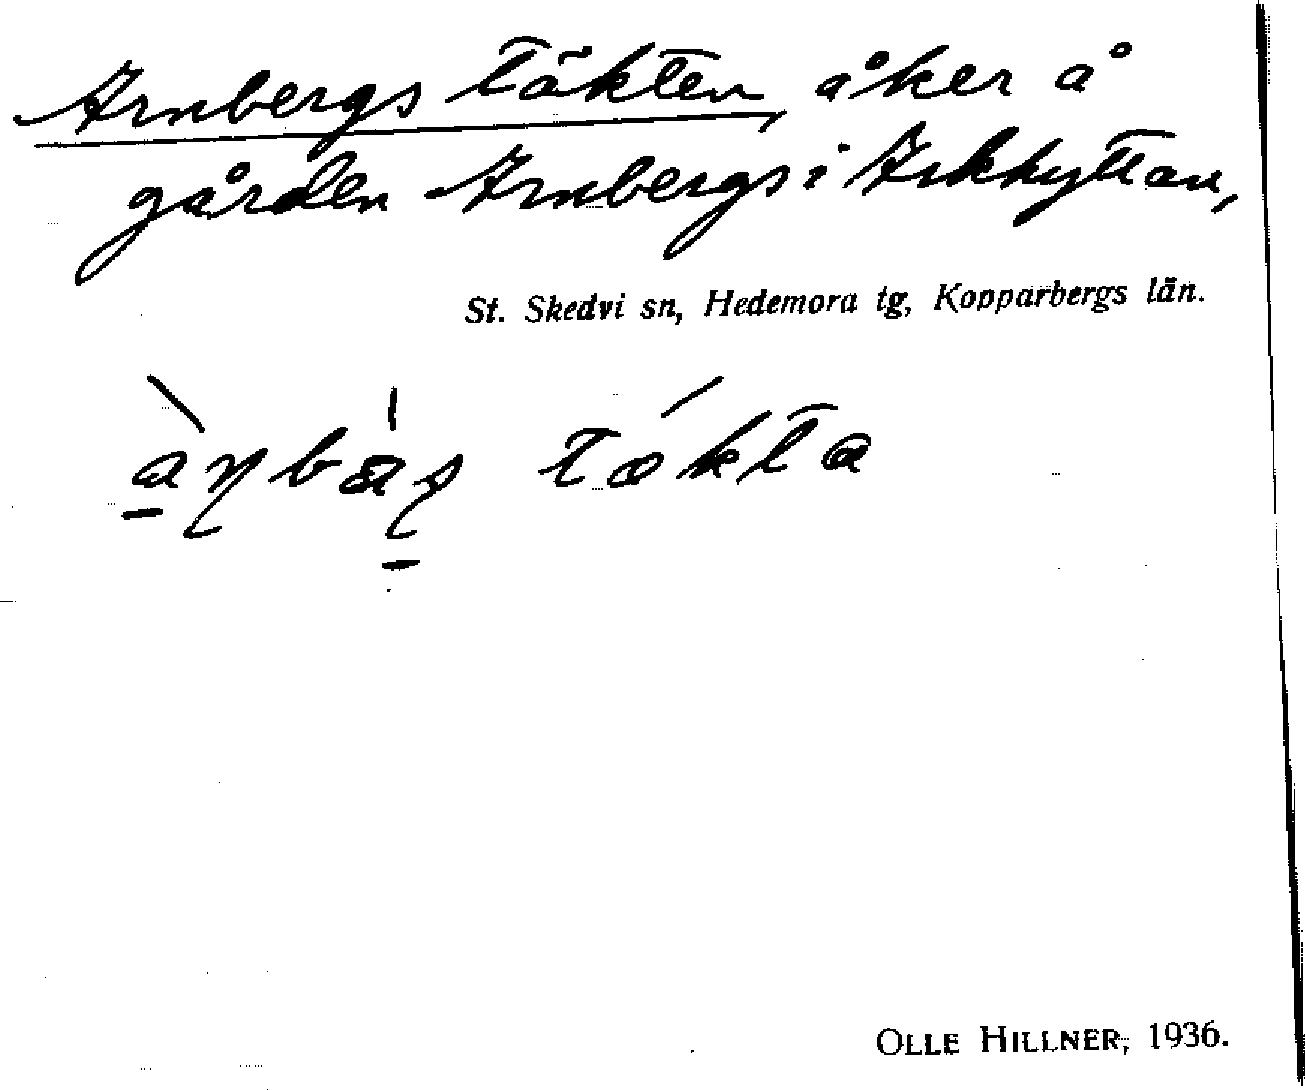 Arnbergs täkten, åker å
gården Arnbergs i Arkhyttan,
St. Skedvi sn, Hedemora tg, Kopparbergs län.
OLLE HILLNER, 1936.